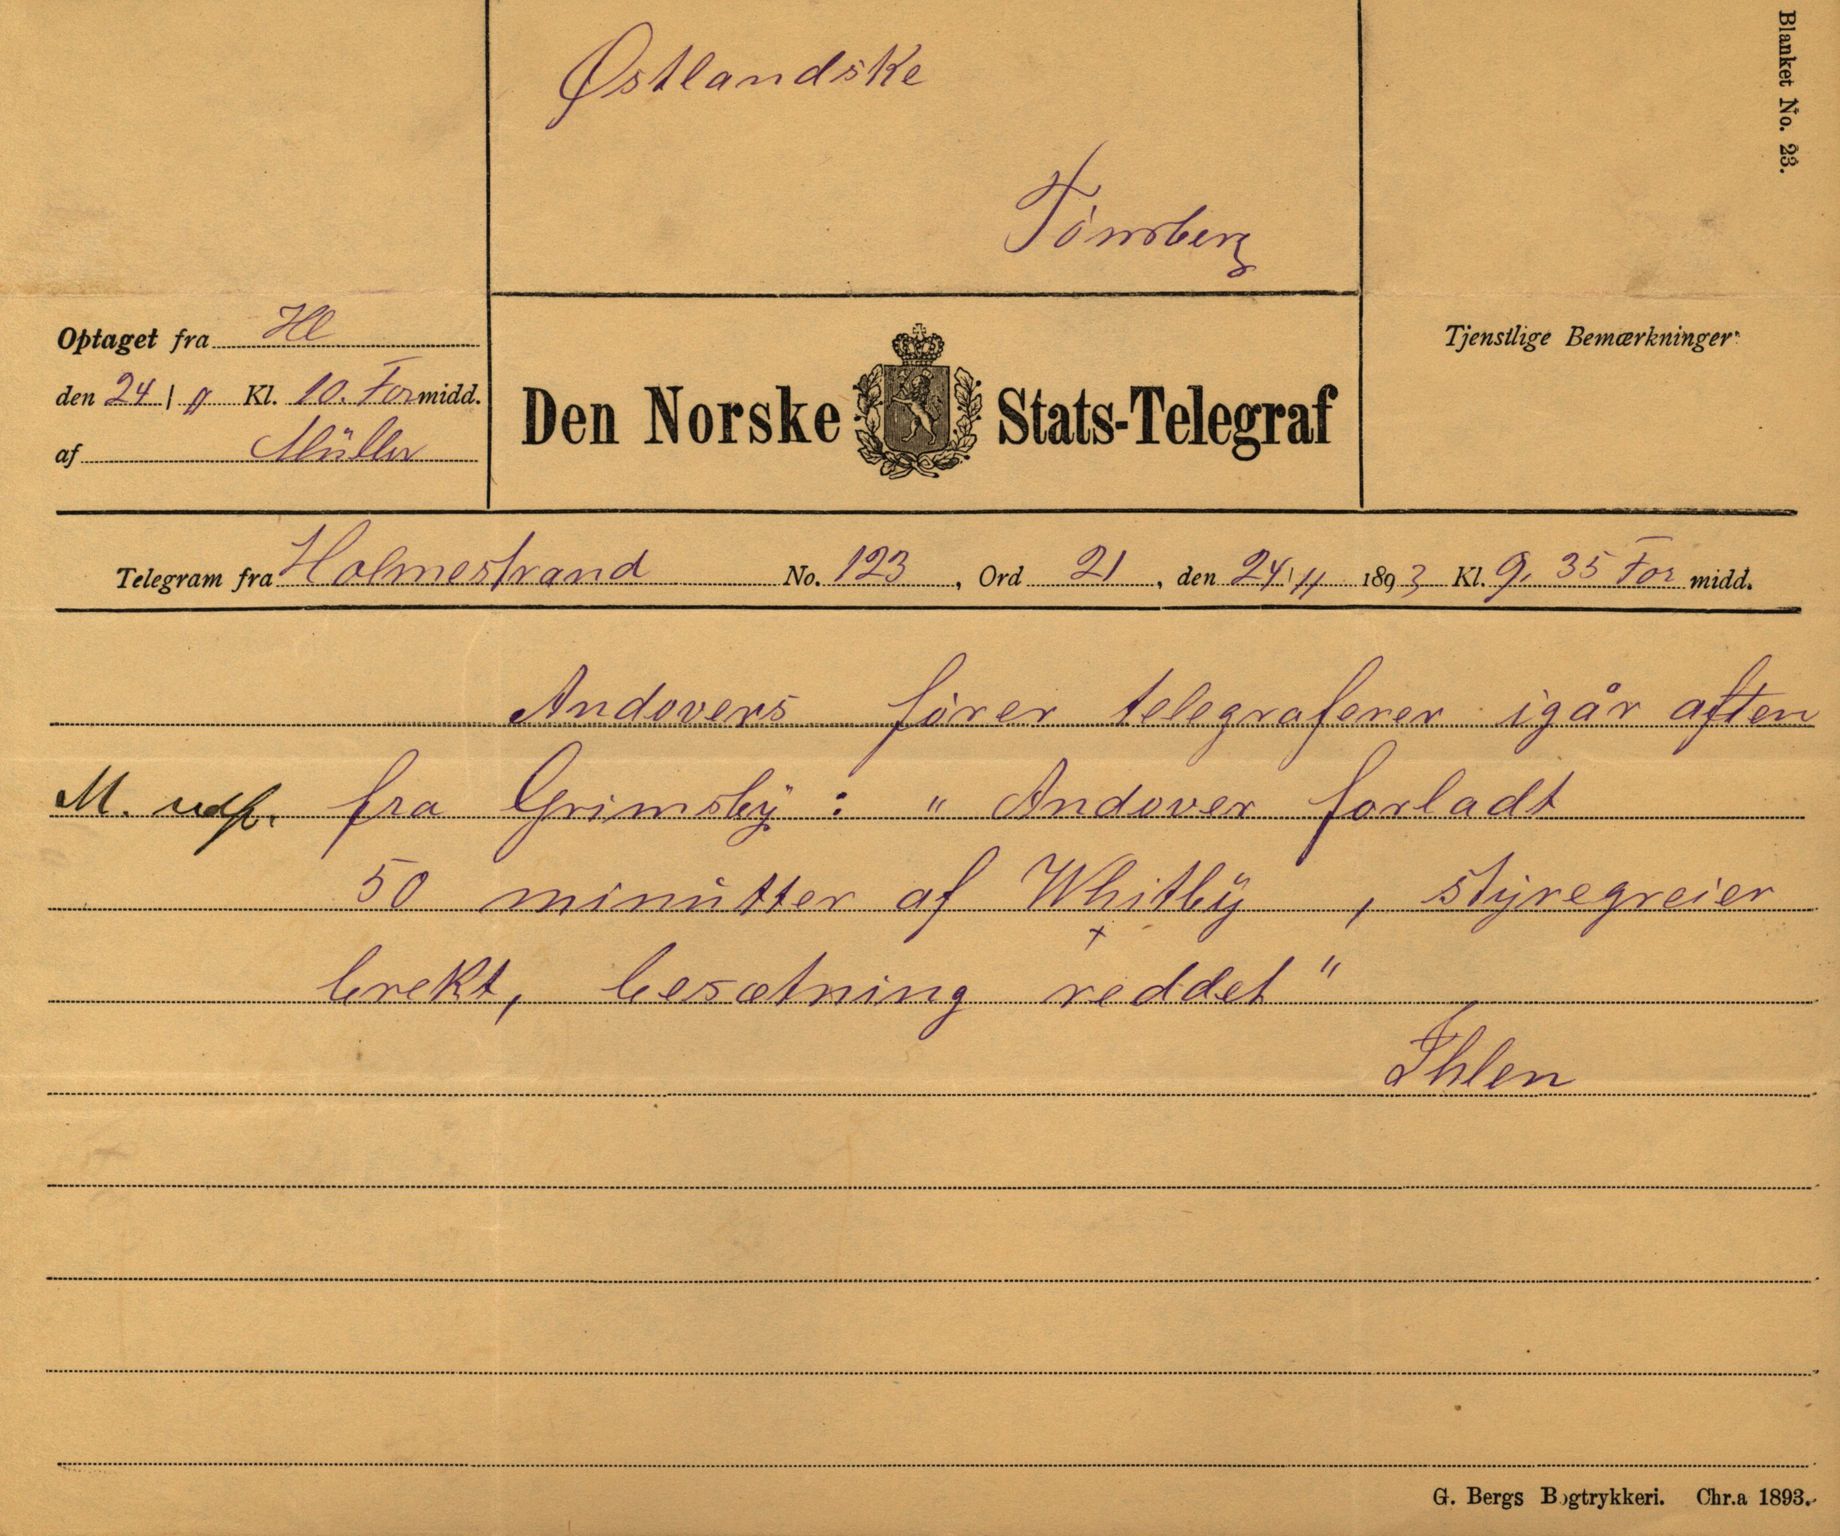 Blanket No. 23.
Østlandske
Tönsberg
Optaget fra Hl
den 24 / 11 Kl. 10. Formidd.
af Müller
Den Norske Stats-Telegraf
Tjenstlige Bemærkninger
Telegram fra Holmestrand No. 123, Ord 21, den 24/11 1893 Kl. 9. 35 For midd.
Andovers förer telegraferer igår aften
M. fra Grimsby : " Andover forladt
50 minutter af Whitby , styregreier
brekt, besætning reddet "
Ihlen
G. Bergs Bogtrykkeri. Chr.a 1893.